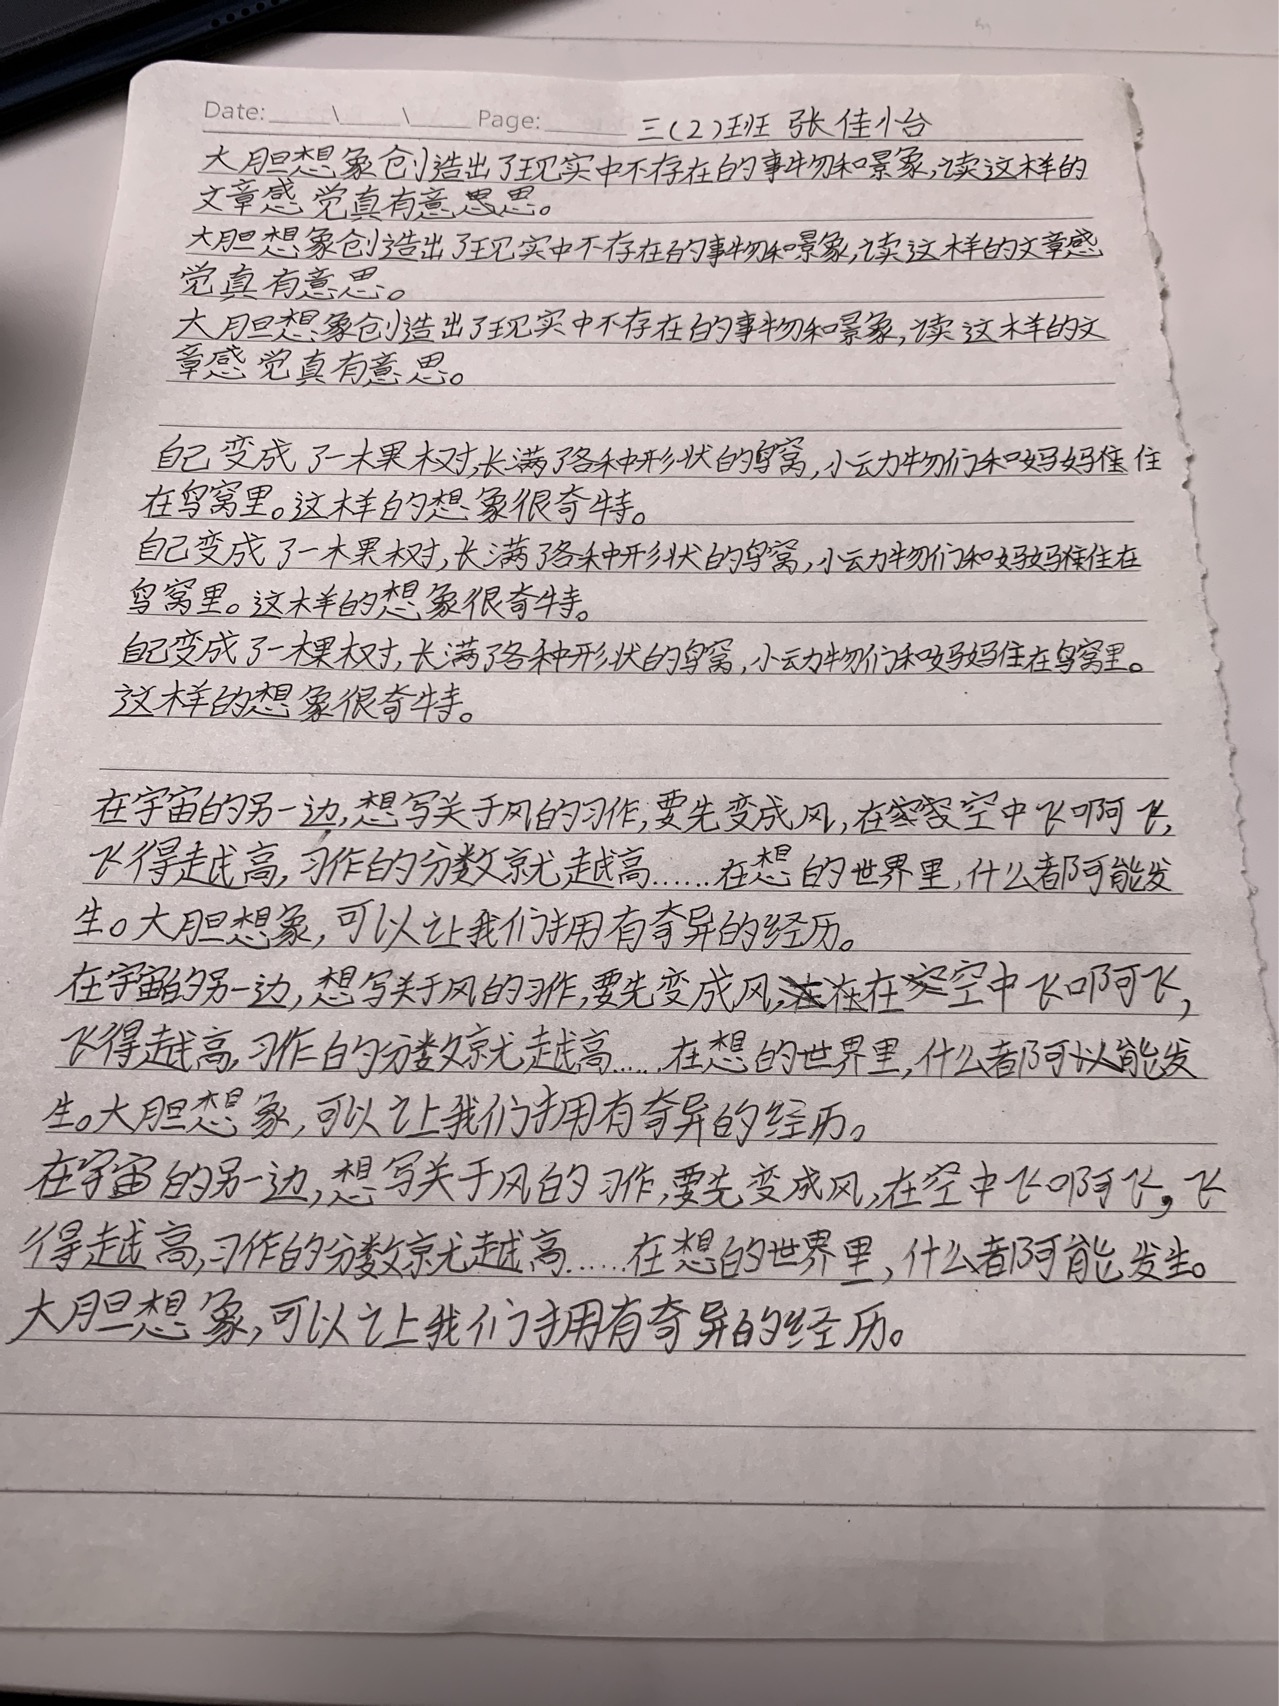 Date: \ \ Page: 三(2)班 张佳怡
大胆想象创造出了现实中不存在的事物和景象,读这样的
文章感觉真有意思。
大胆想象创造出了现实中不存在的事物和景象,读这样的文章感
觉真有意思。
大胆想象创造出了现实中不存在的事物和景象,读这样的文
章感觉真有意思。
自己变成了一棵树,长满了各种形状的鸟窝,小动物们和妈妈住
在鸟窝里。这样的想象很奇特。
自己变成了一棵树,长满了各种形状的鸟窝,小动物们和妈妈住在
鸟窝里。这样的想象很奇特。
自己变成了一棵树,长满了各种形状的鸟窝,小动物们和妈妈住在鸟窝里。
这样的想象很奇特。
在宇宙的另一边,想写关于风的习作,要先变成风,在空中飞啊飞,
飞得越高,习作的分数就越高……在想的世界里,什么都可能发
生。大胆想象,可以让我们拥有奇异的经历。
在宇宙的另一边,想写关于风的习作,要先变成风,在在空中飞啊飞,
飞得越高,习作的分数就越高……在想的世界里,什么都可能发
生。大胆想象,可以让我们拥有奇异的经历。
在宇宙的另一边,想写关于风的习作,要先变成风,在空中飞啊飞,飞
得越高,习作的分数就越高……在想的世界里,什么都可能发生。
大胆想象,可以让我们拥有奇异的经历。